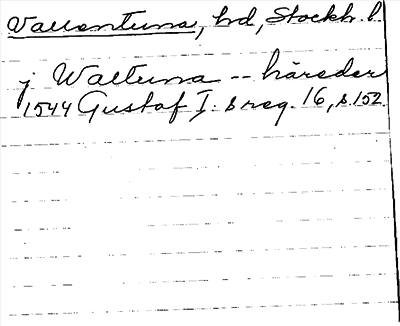 Vallentuna, hd, Stockh. l.
j Waltuna -- häreder
1544 Gustaf I:s reg. 16, s. 152